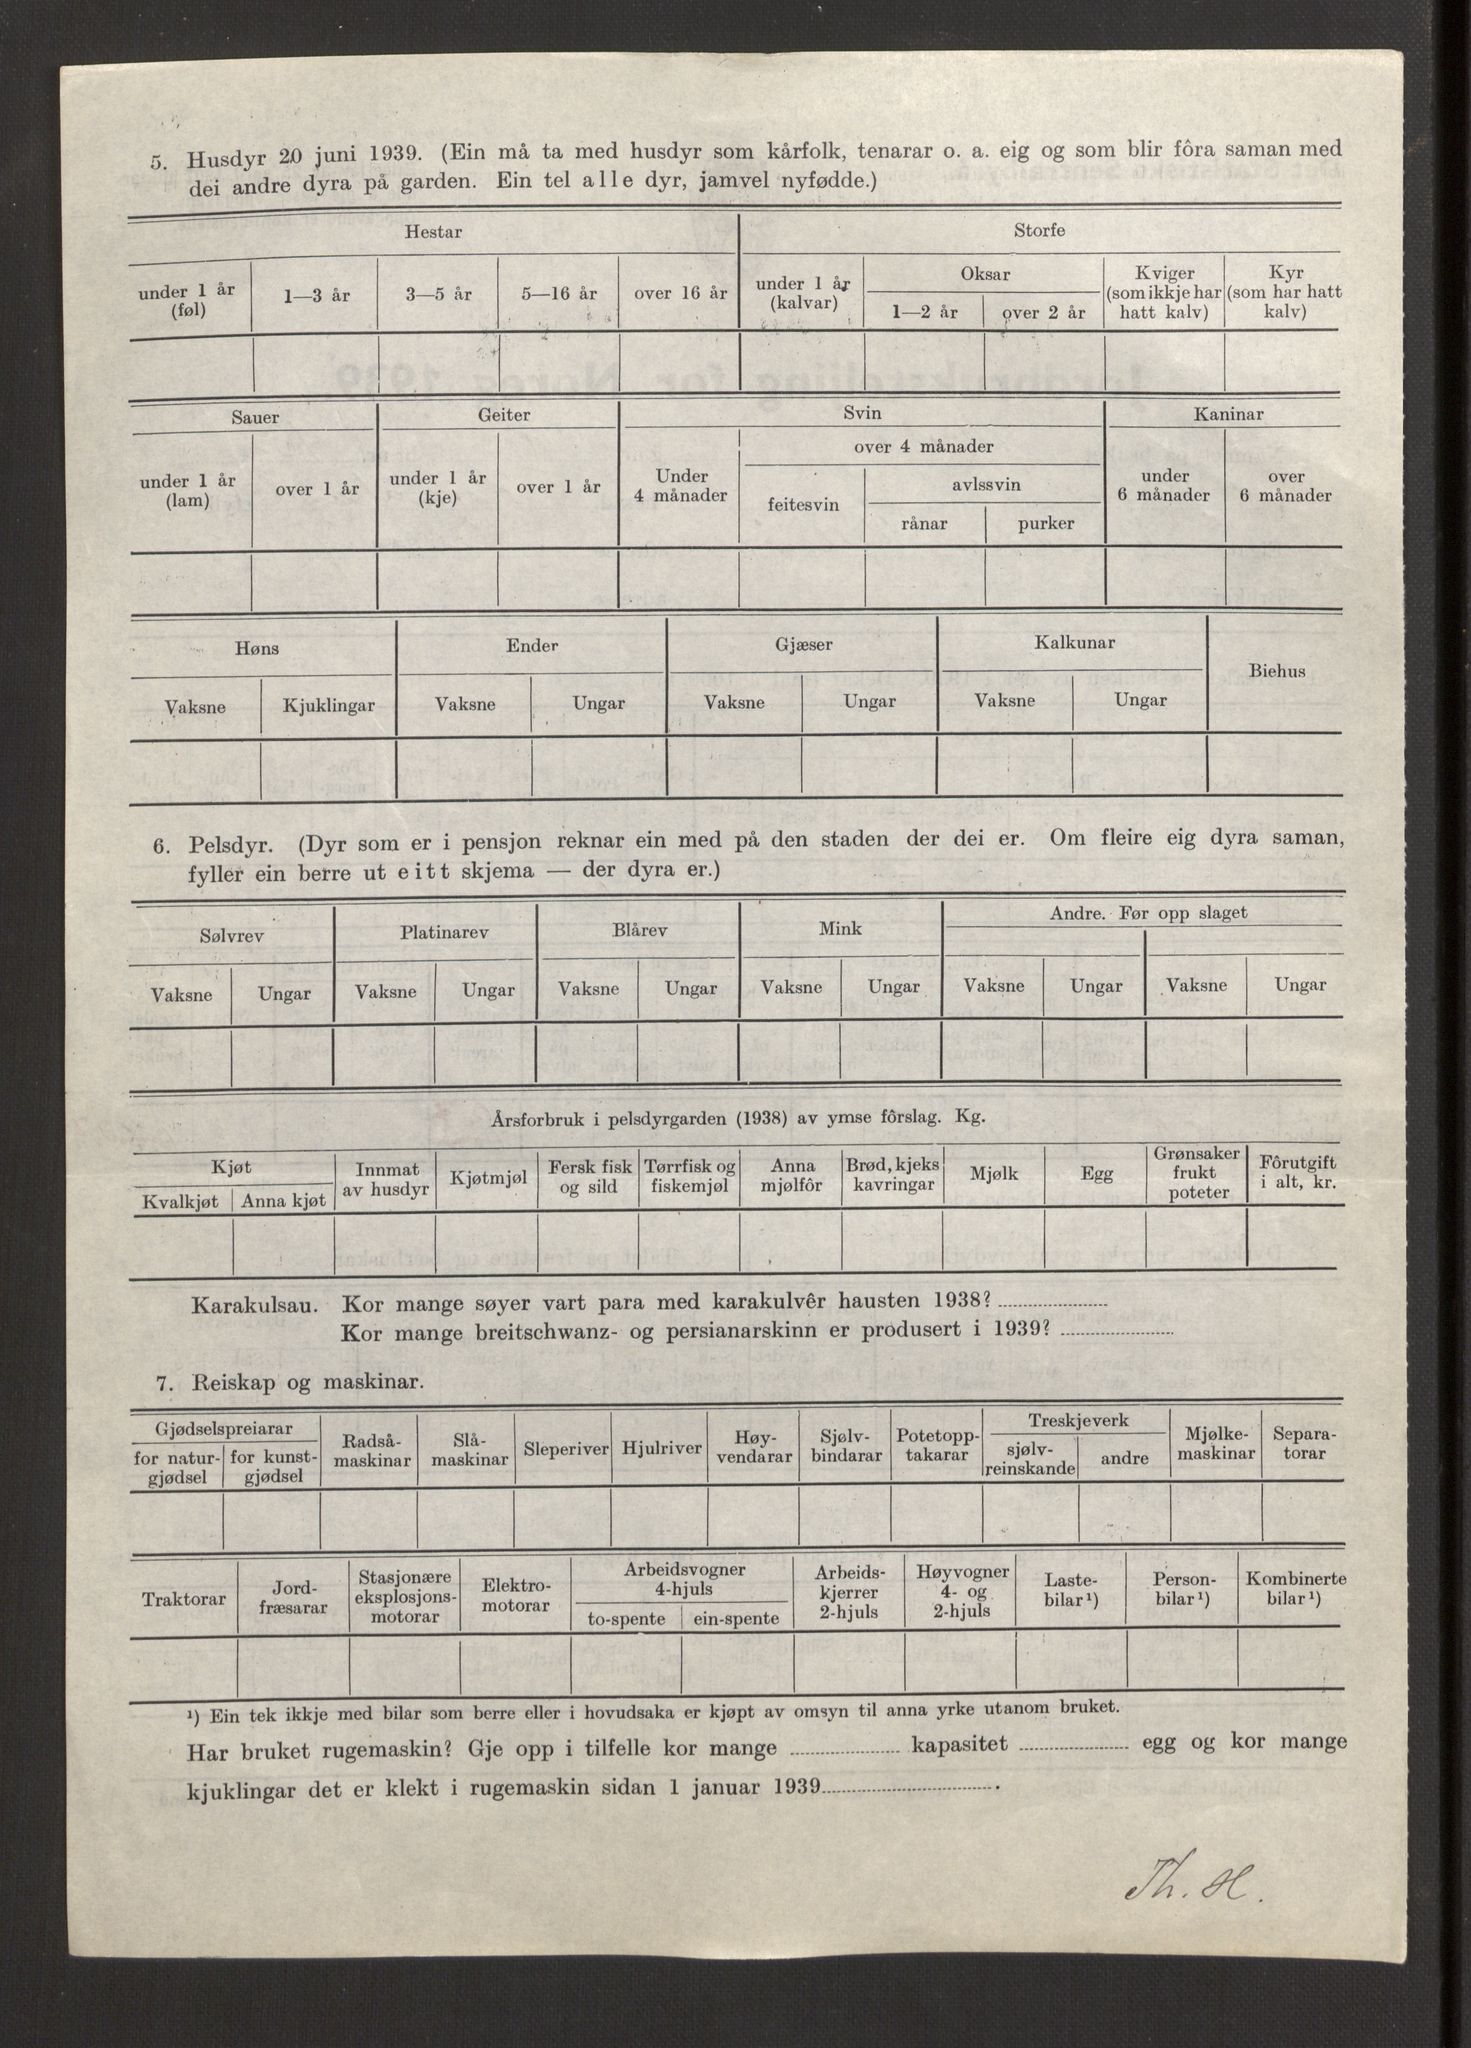 5. Husdyr 20 juni 1939. (Ein må ta med husdyr som kårfolk, tenarar o. a. eig og som blir fôra saman med
dei andre dyra på garden. Ein tel alle dyr, jamvel nyfødde.)
Hestar Storfe
under 1 år (føl) 1—3 år 3—5 år 5—16 år over 16 år under 1 år (kalvar) Oksar 1—2 år over 2 år Kviger (som ikkje har hatt kalv) Kyr (som har hatt kalv)
Sauer Geiter Svin Kaninar
under 1 år (lam) over 1 år under 1 år (kje) over 1 år Under 4 månader over 4 månader feitesvin avlssvin rånar purker under 6 månader over 6 månader
Høns Ender Gjæser Kalkunar Biehus
Vaksne Kjuklingar Vaksne Ungar Vaksne Ungar Vaksne Ungar
6. Pelsdyr. (Dyr som er i pensjon reknar ein med på den staden der dei er. Om fleire eig dyra saman,
fyller ein berre ut eitt skjema — der dyra er.)
Sølvrev Platinarev Blårev Mink Andre. Før opp slaget
Vaksne Ungar Vaksne Ungar Vaksne Ungar Vaksne Ungar Vaksne Ungar Vaksne Ungar
Årsforbruk i pelsdyrgarden (1938) av ymse fôrslag. Kg.
Kjøt Kvalkjøt Anna kjøt Innmat av husdyr Kjøtmjøl Fersk fisk og sild Tørrfisk og fiskemjøl Anna mjølfôr Brød, kjeks kavringar Mjølk Egg Grønsaker frukt poteter Fôrutgift i alt, kr.
Karakulsau. Kor mange søyer vart para med karakulvêr hausten 1938?
Kor mange breitschwanz- og persianarskinn er produsert i 1939?
7. Reiskap og maskinar.
Gjødselspreiarar for natur-gjødsel for kunst-gjødsel Radså-maskinar Slå-maskinar Sleperiver Hjulriver Høy-vendarar Sjølv-bindarar Potetopp-takarar Treskjeverk sjølv-reinskande andre Mjølke-maskinar Separa-torar
Traktorar Jord-fræsarar Stasjonære eksplosjons-motorar Elektro-motorar Arbeidsvogner 4-hjuls to-spente ein-spente Arbeids-kjerrer 2-hjuls Høyvogner 4- og 2-hjuls Laste-bilar ¹) Person-bilar ¹) Kombinerte bilar ¹)
¹) Ein tek ikkje med bilar som berre eller i hovudsaka er kjøpt av omsyn til anna yrke utanom bruket.
Har bruket rugemaskin? Gje opp i tilfelle kor mange kapasitet egg og kor mange
kjuklingar det er klekt i rugemaskin sidan 1 januar 1939 .
Th. H.